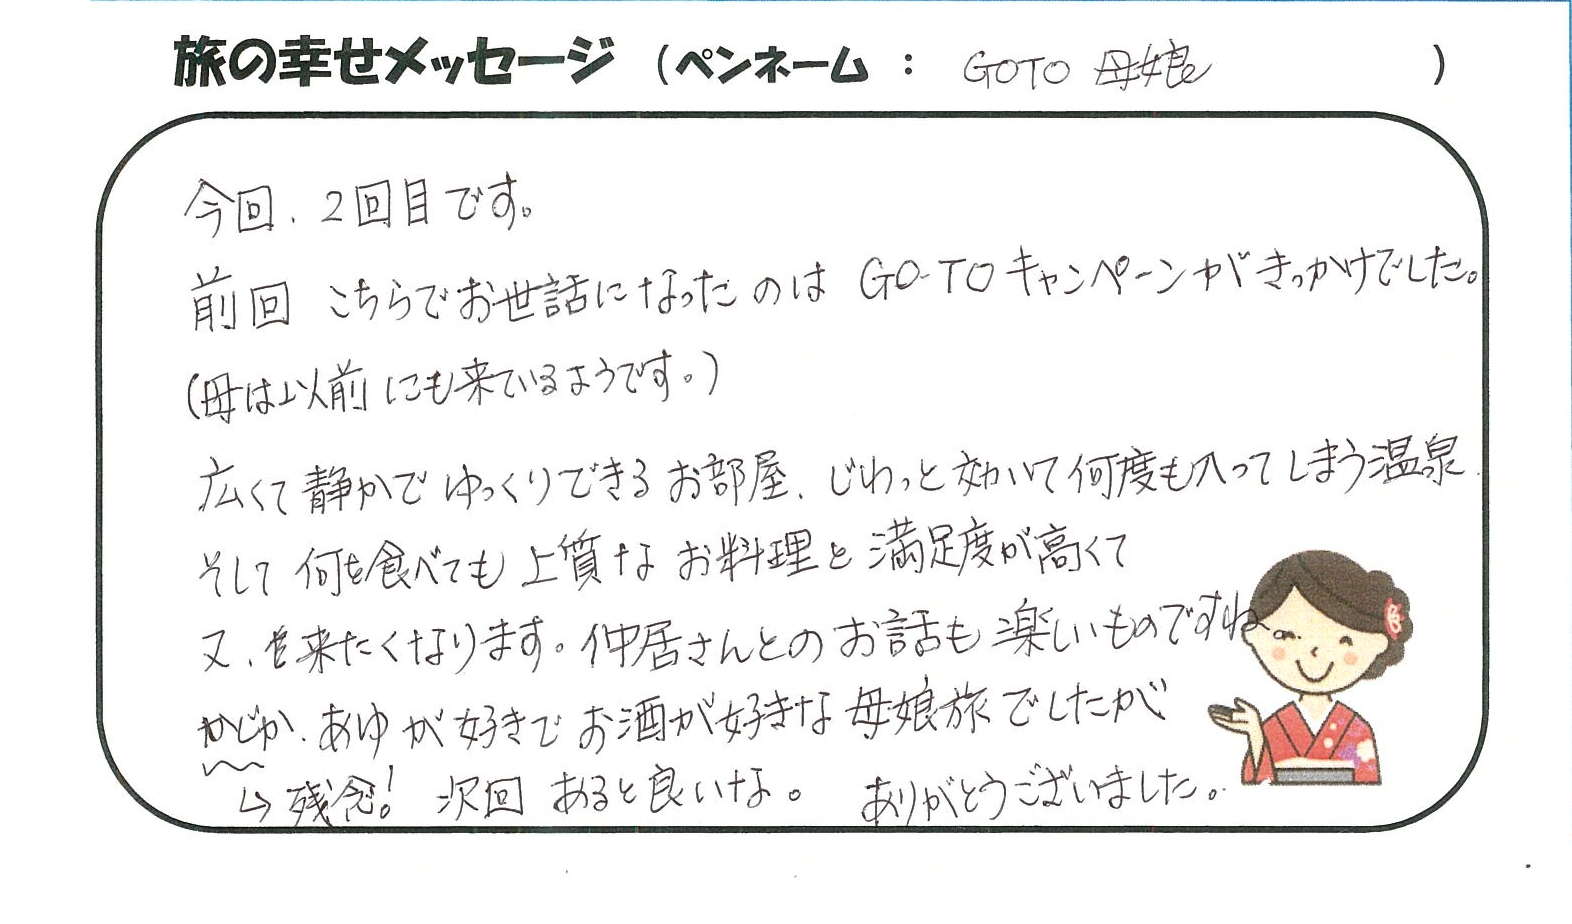 旅の幸せメッセージ (ペンネーム : GOTO 母娘 )
今回、2回目です。
前回 こちらでお世話になったのは GO-TOキャンペーンがきっかけでした。
(母は以前にも来ているようです。)
広くて静かでゆっくりできるお部屋、じわっと効いて何度も入ってしまう温泉、
そして何を食べても上質なお料理と満足度が高くて
又、来たくなります。仲居さんとのお話も楽しいものですね
かじか、あゆが好きでお酒が好きな母娘旅でしたが
↳残念! 次回あると良いな。 ありがとうございました。